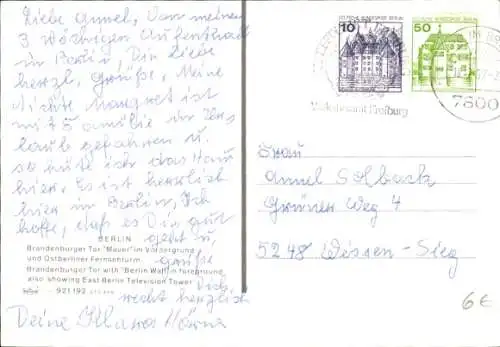 Liebe Annel, Von meinem
3 wöchigen Aufenthalt
in Berlin, Dir liebe
herzl. Grüße, Meine
Nichte Margret ist
mit Familie in Ur-
laub gefahren u.
so hüte ich das Haus
hier. Es ist herrlich
hier in Berlin, Ich
hoffe, daß es Dir gut
geht u.
grüße
Dich
recht herzlich
Deine
BERLIN
Brandenburger Tor "Mauer" im Vordergrund
und Ostberliner Fernsehturm
Brandenburger Tor with "Berlin Wall" in foreground
also showing East Berlin Television Tower
921 192
10
DEUTSCHE BUNDESPOST BERLIN
50
DEUTSCHE BUNDESPOST BERLIN
Freiburg
7800
Frau
Annel Solbach
Grüner Weg 4
5248 Wissen-Sieg
6€